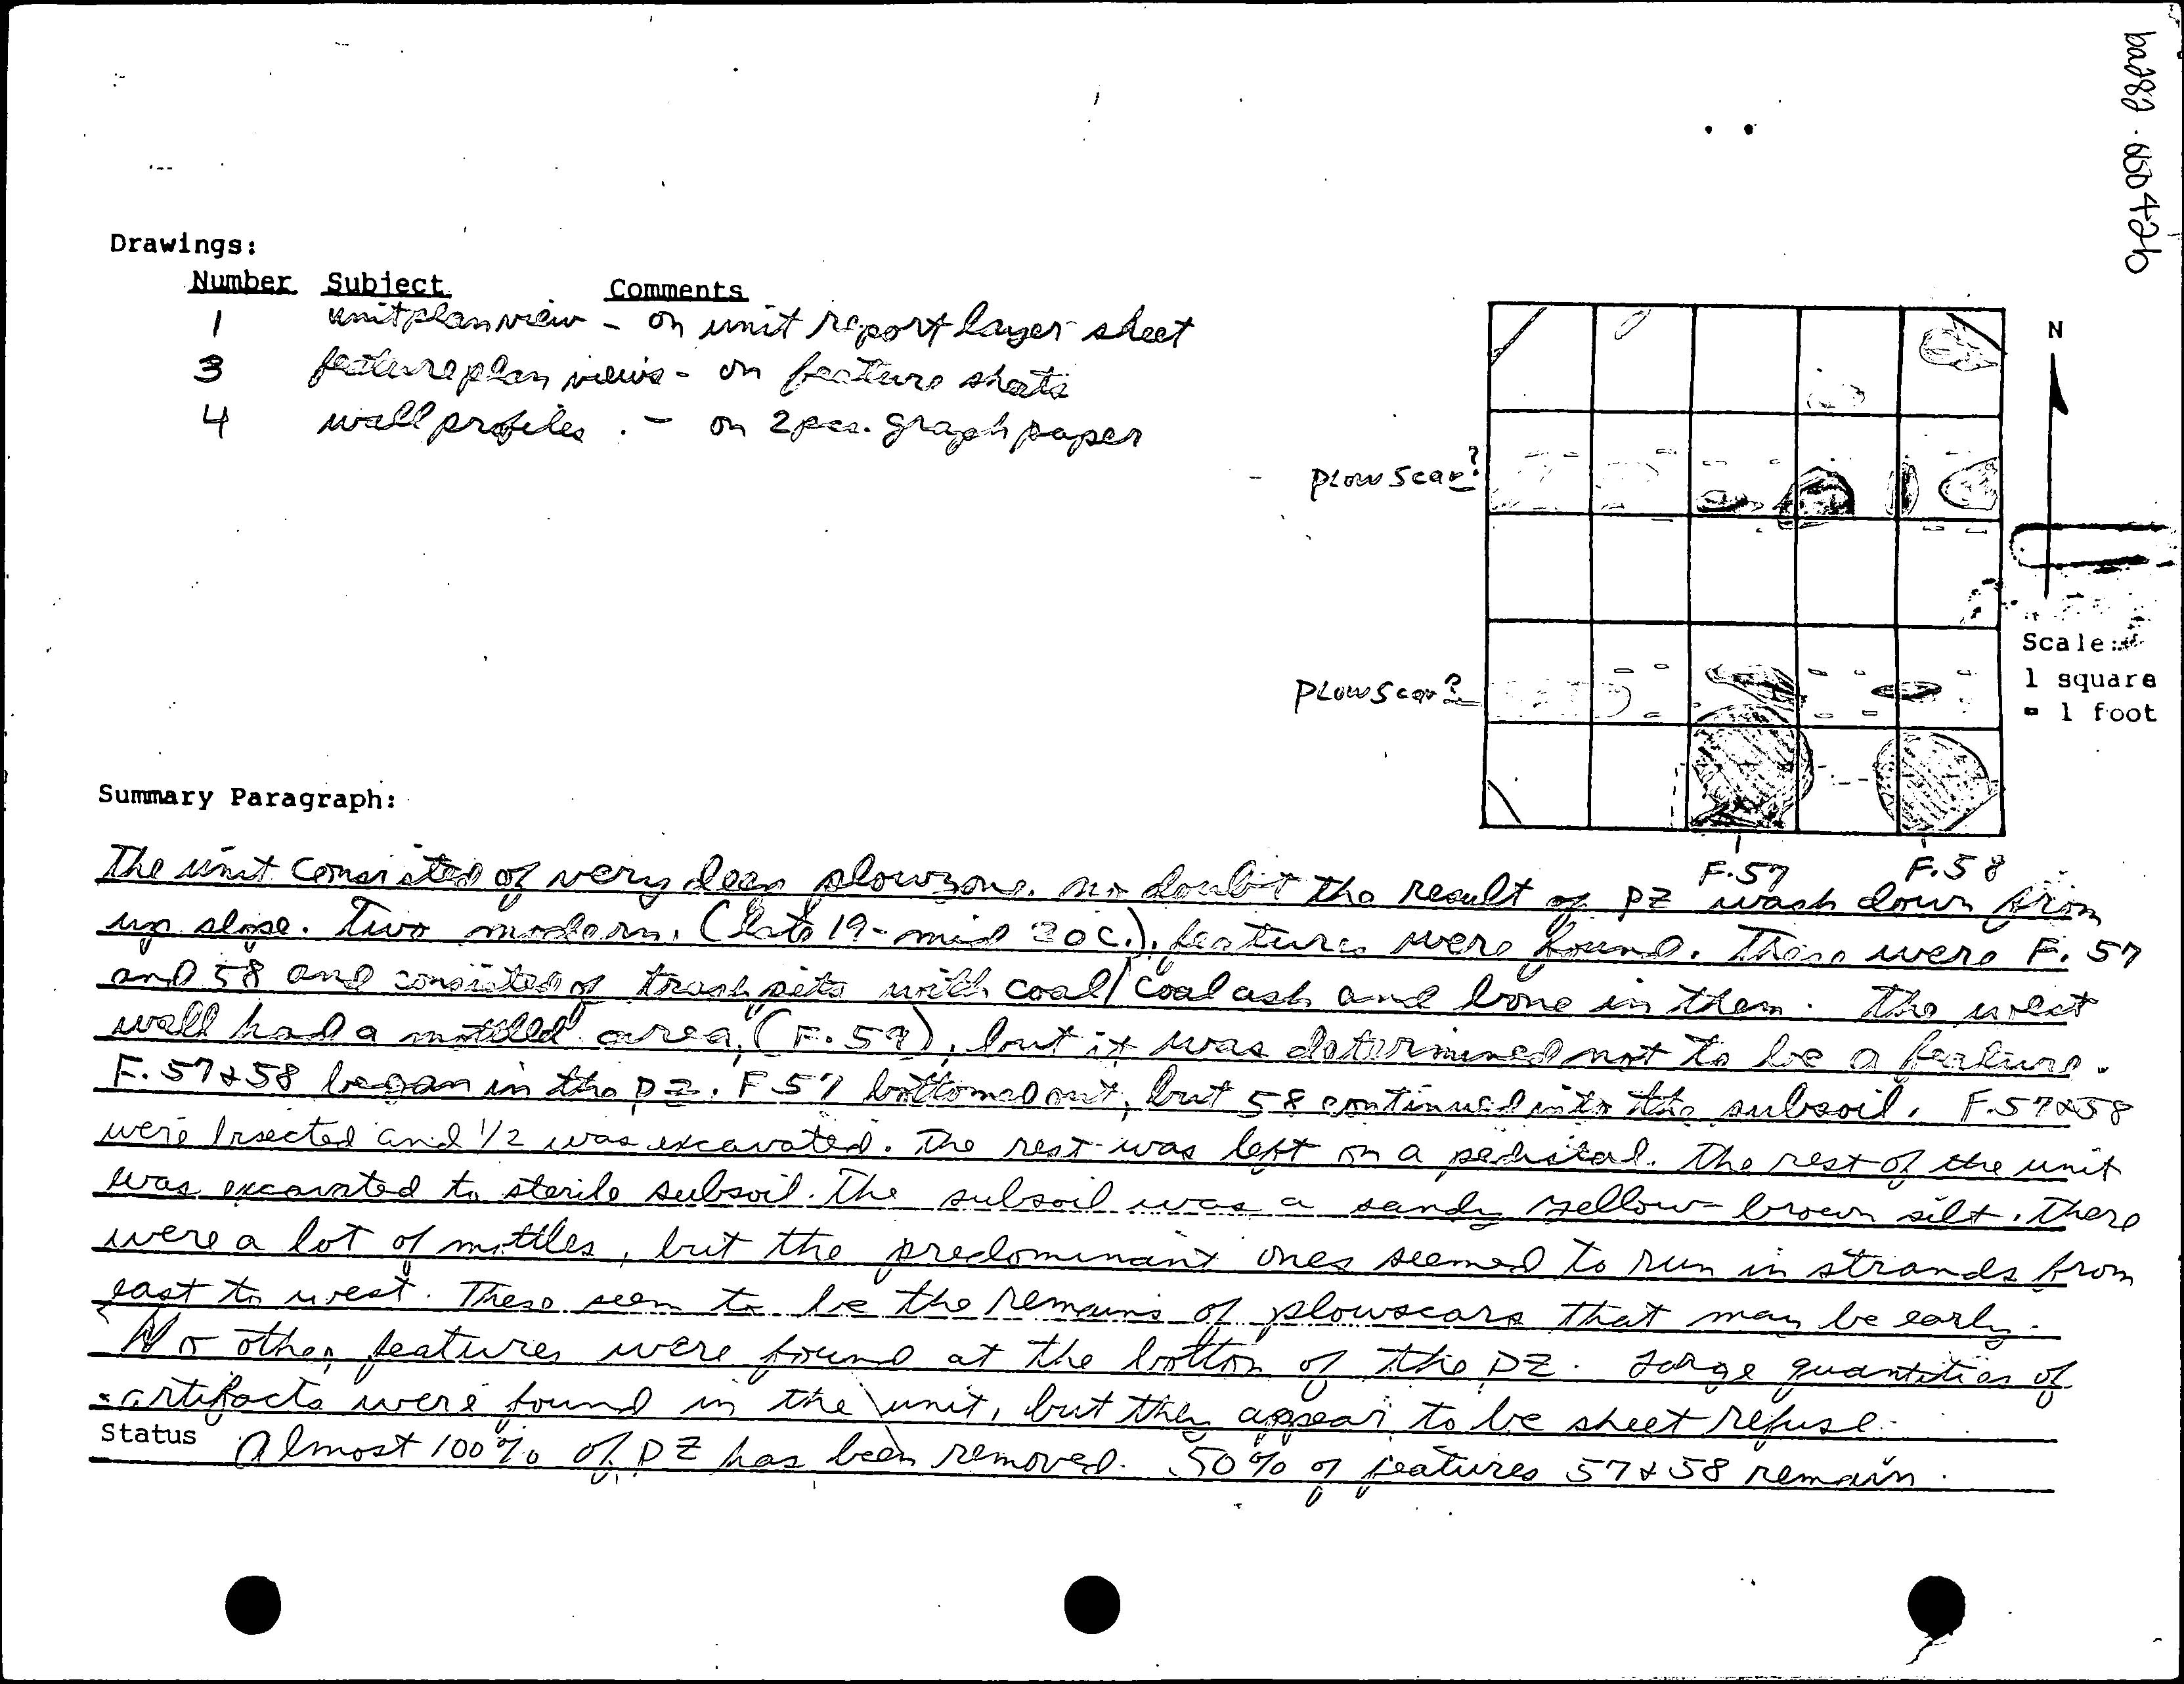 Drawings:
Number Subject Comments
1 unit plan view - on unit report layer sheet
3 feature plan views - on feature sheets
4 wall profiles. - on 2 pcs. graph paper
N
Plow Scar?
Plow Scar?
Scale:
1 square
= 1 foot
F.57 F.58
Summary Paragraph:
The unit consisted of very deep plowzone, no doubt the result of PZ wash down from
up slope. Two modern (late 19- mid 20 C.) features were found. These were F. 57
and 58 and consisted of trash pits with coal/coal ash and bone in them. The west
wall had a mottled area, (F. 59), but it was determined not to be a feature.
F. 57 & 58 began in the PZ. F 57 bottomed out, but 58 continued into the subsoil. F.57 & 58
were bisected and 1/2 was excavated. The rest was left on a pedistal. The rest of the unit
was excavated to sterile subsoil. The subsoil was a sandy yellow-brown silt. There
were a lot of mottles, but the predominant ones seemed to run in strands from
east to west. These seem to be the remains of plowscars that may be early.
No other features were found at the bottom of the PZ. Large quantities of
artifacts were found in the unit, but they appear to be sheet refuse.
Status Almost 100% of PZ has been removed. 50% of features 57 & 58 remain.